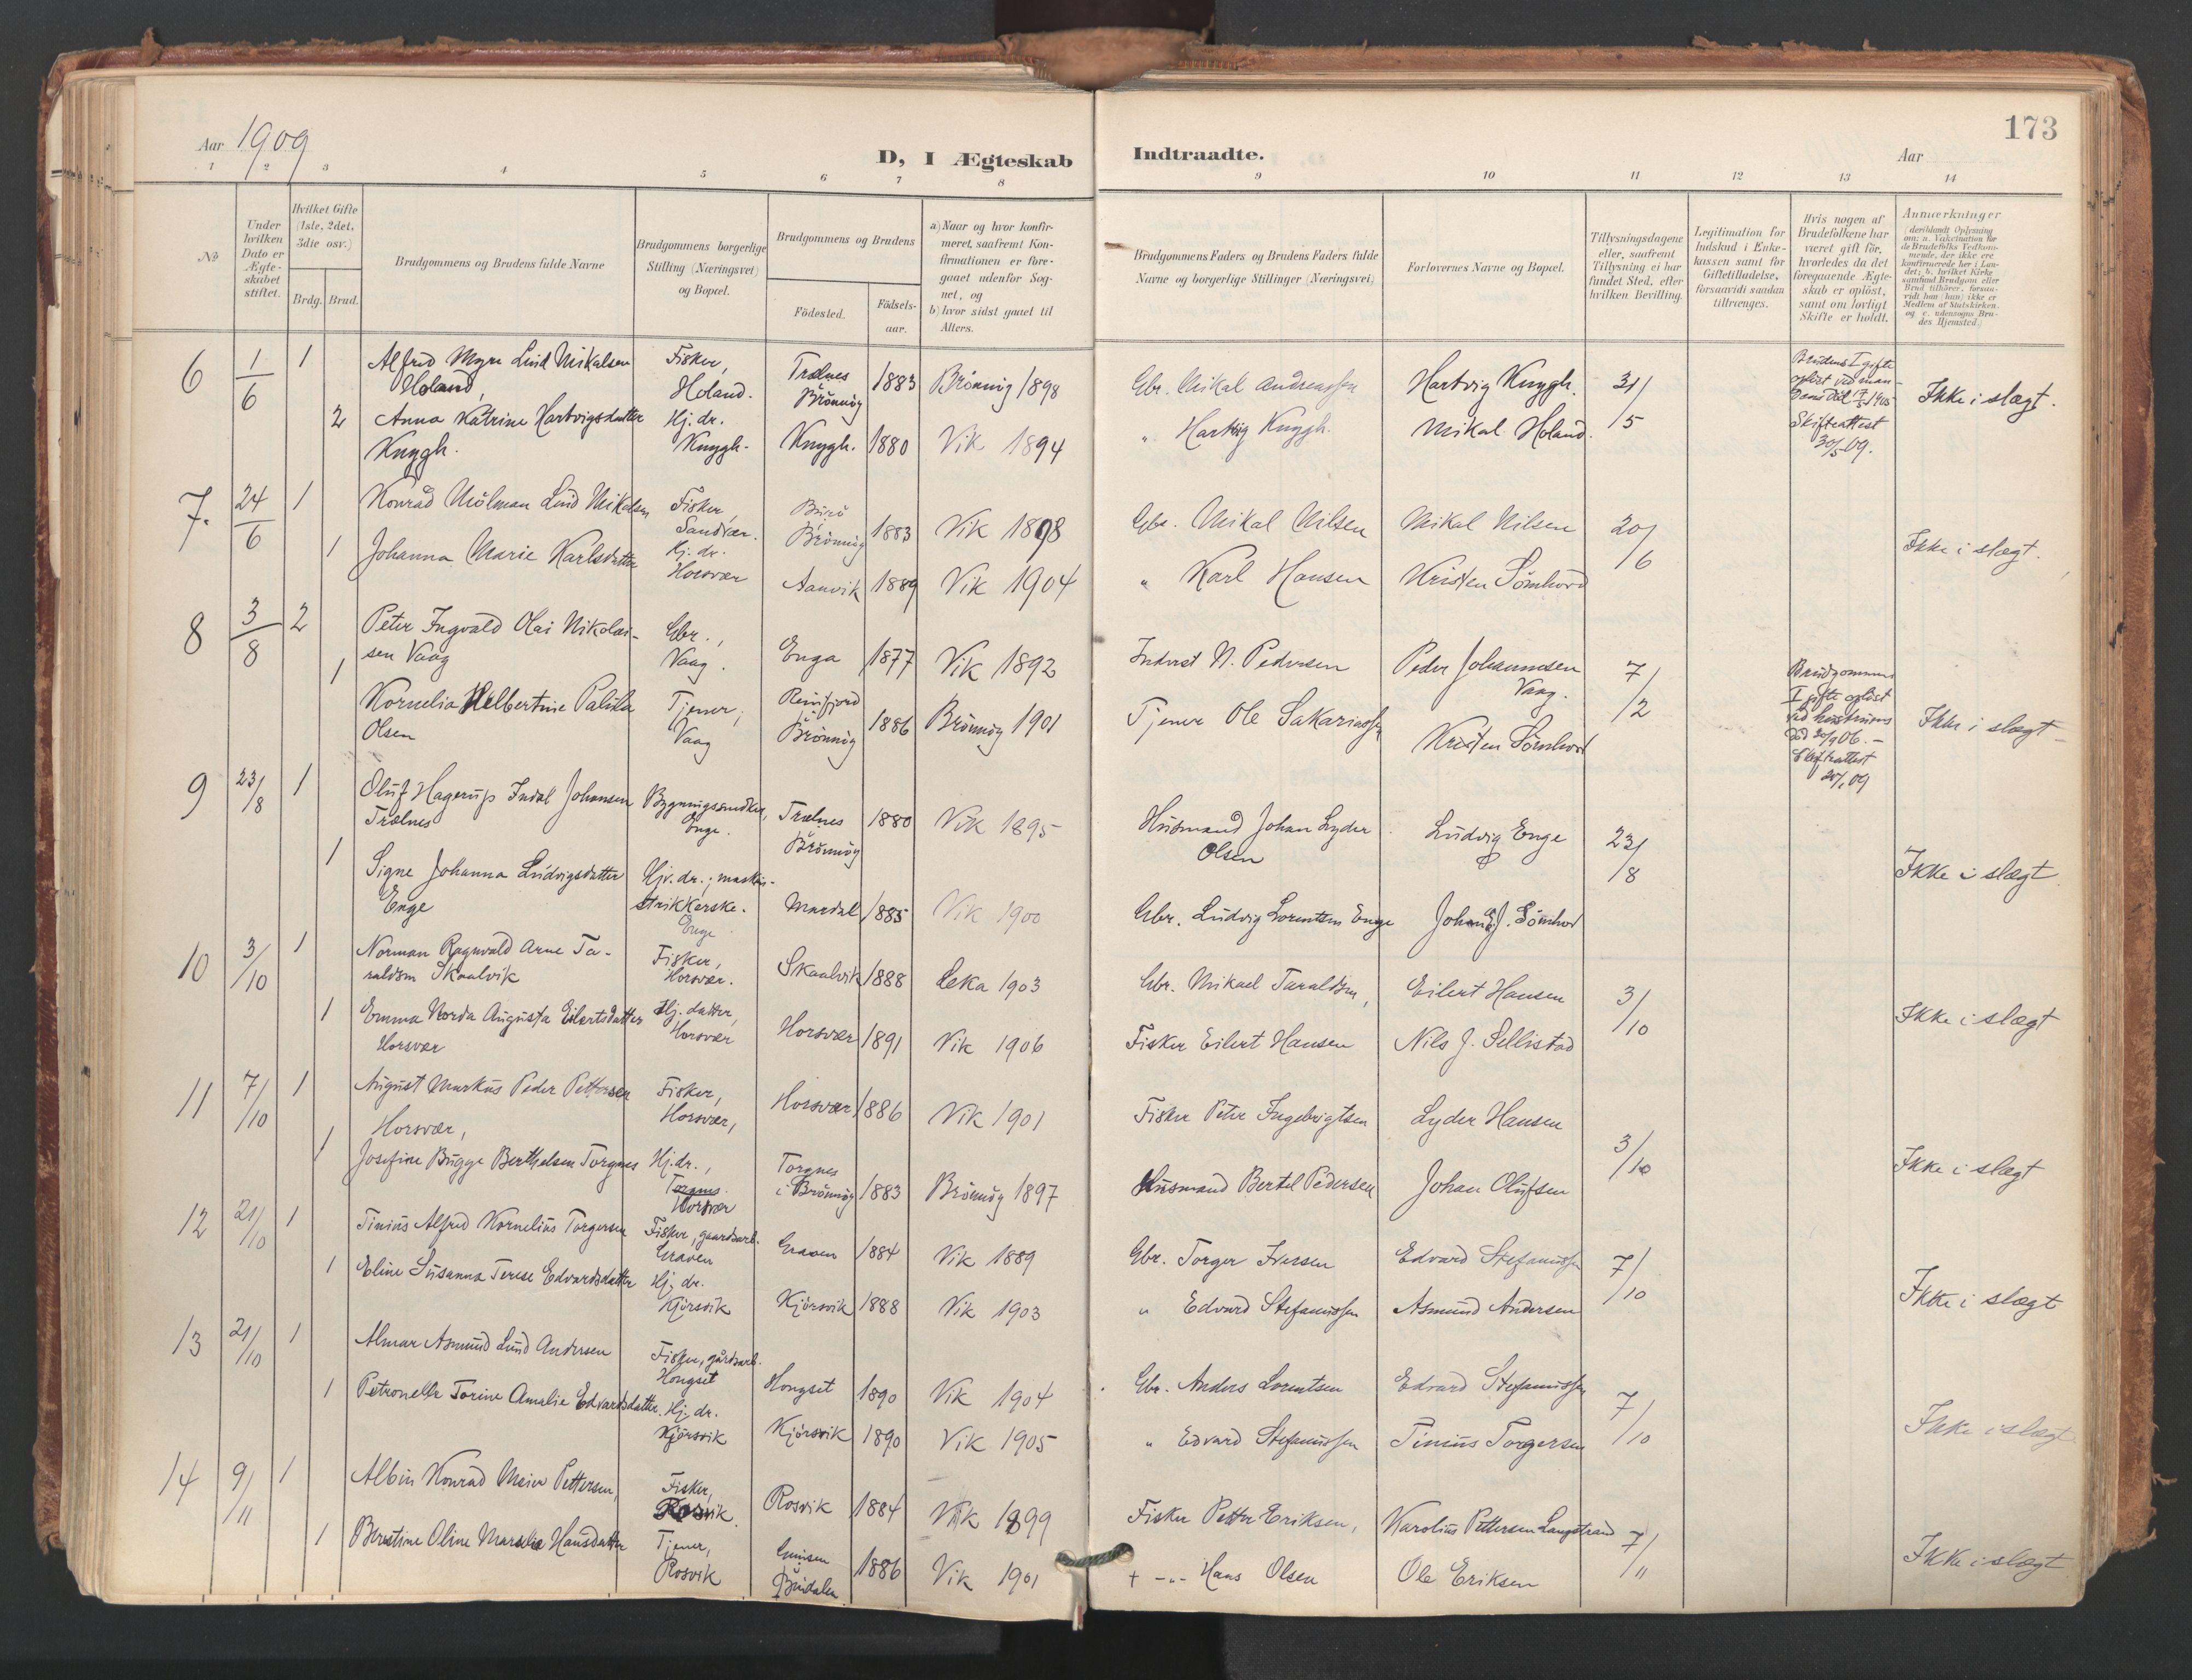 Aar 1909
D, I Ægteskab
Indtraadte.
Aar
173
1 2 3 4 5 6 7 8 9 10 11 12 13 14
№
Under hvilken Dato er Ægteskabet stiftet.
Hvilket Gifte (1ste, 2det, 3die osv.)
Brdg. Brud.
Brudgommens og Brudens fulde Navne
Brudgommens borgerlige Stilling (Næringsvei) og Bopæl.
Brudgommens og Brudens
Fødested.
Fødselsaar.
a) Naar og hvor konfirmeret, saafremt Konfirmationen er foregaaet udenfor Sognet, og
b) hvor sidst gaaet til Alters.
Brudgommens Faders og Brudens Faders fulde Navne og borgerlige Stillinger (Næringsvei)
Forlovernes Navne og Bopæl.
Tillysningsdagene eller, saafremt Tillysning ei har fundet Sted, efter hvilken Bevilling.
Legitimation for Indskud i Enkekassen samt for Giftetilladelse, forsaavidt saadan tiltrænges.
Hvis nogen af Brudefolkene har været gift før, hvorledes da det foregaaende Ægteskab er opløst, samt om lovligt Skifte er holdt.
Anmærkninger (deriblandt Oplysning om: a. Vakcination for de Brudefolks Vedkommende, der ikke ere konfirmerede her i Landet; b. hvilket Kirkesamfund Brudgom eller Brud tilhører, forsaavidt han (hun) ikke er Medlem af Statskirken, og c. udensogns Brudes Hjemsted.)
6 1/6 1 Alfred Myre Lind Mikalsen Fisker, Trælnes 1883 Brönnöy 1898 Gbr. Mikal Andreassen Hartvig Knygh. 31/5
Holand, Holand. Brönnöy
2 Anna Katrine Hartvigsdatter Hj. dr. Knygh. 1880 Vik 1894 " Hartvig Knygh. Mikal Holand.
Knygh. Knygh.
Brudens I gifte opløst ved mandens Död 1905 Skifteattest 30/5 09.
Ikke i slægt.
7. 24/6 1 Konrad Mölman Lind Mikalsen Fisker, Sandvær. Brönnöy 1883 Vik 1898 Gbr. Mikal Nilsen Mikal Nilsen 20/6
1 Johanna Marie Karlsdatter Hj. dr. Horsvær Aanvik 1889 Vik 1904 " Karl Hansen Kristen Sömhovd
Ikke i slægt.
8 3/8 2 Peter Ingvald Olai Nikolai- Gbr., Enga 1877 Vik 1892 Inderst N. Pedersen Peder Johannesen Vaag. 7/2
sen Vaag Vaag.
1 Kornelia Helbertine Palila Tjener, Reinfjord 1886 Brönnöy 1901 Tjener Ole Sakariassen Kristen Sömhovd
Olsen Vaag Brönnöy
Brudgommens I gifte oplöst ved hustruens död 20/9 06. - Skifteattest 09
Ikke i slægt
9 23/8 1 Oluf Hagerup Indal Johansen Bygningssnedker, Enge. Trælnes 1880 Vik 1895 Husmand Johan Lyder Olsen Ludvig Enge 22/8
Trælnes Brönnöy
1 Signe Johanna Ludvigsdatter Hj. dr.; maskin- Mardal 1885 Vik 1900 Gbr. Ludvig Lorentsen Enge Johan J. Sömhovd
Enge strikkerske. Enge
Ikke i slægt
10 3/10 1 Norman Ragnvald Arne Ta- Fisker, Skaalvik 1888 Leka 1903 Gbr. Mikael Taraldsen, Eilert Hansen 3/10
raldsen Skaalvik Horsvær.
1 Emma Norda Augusta Eilertsdatter Hj. datter, Horsvær 1891 Vik 1906 Fisker Eilert Hansen Nils J. Sellistad
Horsvær Horsvær
Ikke i slægt
11 7/10 1 August Markus Peder Pettersen Fisker, Horsvær 1886 Vik 1901 Fisker Peter Ingebrigtsen Lyder Hansen 3/10
Horsvær, Horsvær,
1 Josefine Bugge Berthelsen Torgnes Hj. dr., Torgnes 1883 Brönnöy 1897 Husmand Bertel Pedersen Johan Olufsen
Torgnes Horsvær i Brönnöy
Ikke i slægt
12 21/10 1 Tinius Alfred Kornelius Torgersen Fisker, gaardsarb. Graven Graven 1884 Vik 1889 Gbr. Torger Iversen Edvard Stefanussen 7/10
1 Eline Susanna Terese Edvardsdatter Hj. dr. Kjörsvik Kjörsvik 1888 Vik 1903 " Edvard Stefanussen Asmund Andersen
Ikke i slægt
13 21/10 1 Almar Asmund Lund Andersen Fisker, gårdsarb. Hongset Hongset 1890 Vik 1904 Gbr. Anders Lorentsen Edvard Stefanussen 7/10
1 Petronelle Torine Amalie Edvardsdatter. Hj. dr. Kjörsvik Kjörsvik 1890 Vik 1905 " Edvard Stefanussen Tinius Torgersen
Ikke i slægt
14 9/11 1 Albin Konrad Meier Pettersen, Fisker, Rosvik. Rosvik 1884 Vik 1899 Fisker Petter Eriksen, Karolius Pettersen Langstrand 7/11
1 Berntine Oline Marselie Hansdatter Tjener, Rosvik Bindalen 1886 Vik 1901 + -"- Hans Olsen Ole Eriksen
Ikke i slægt